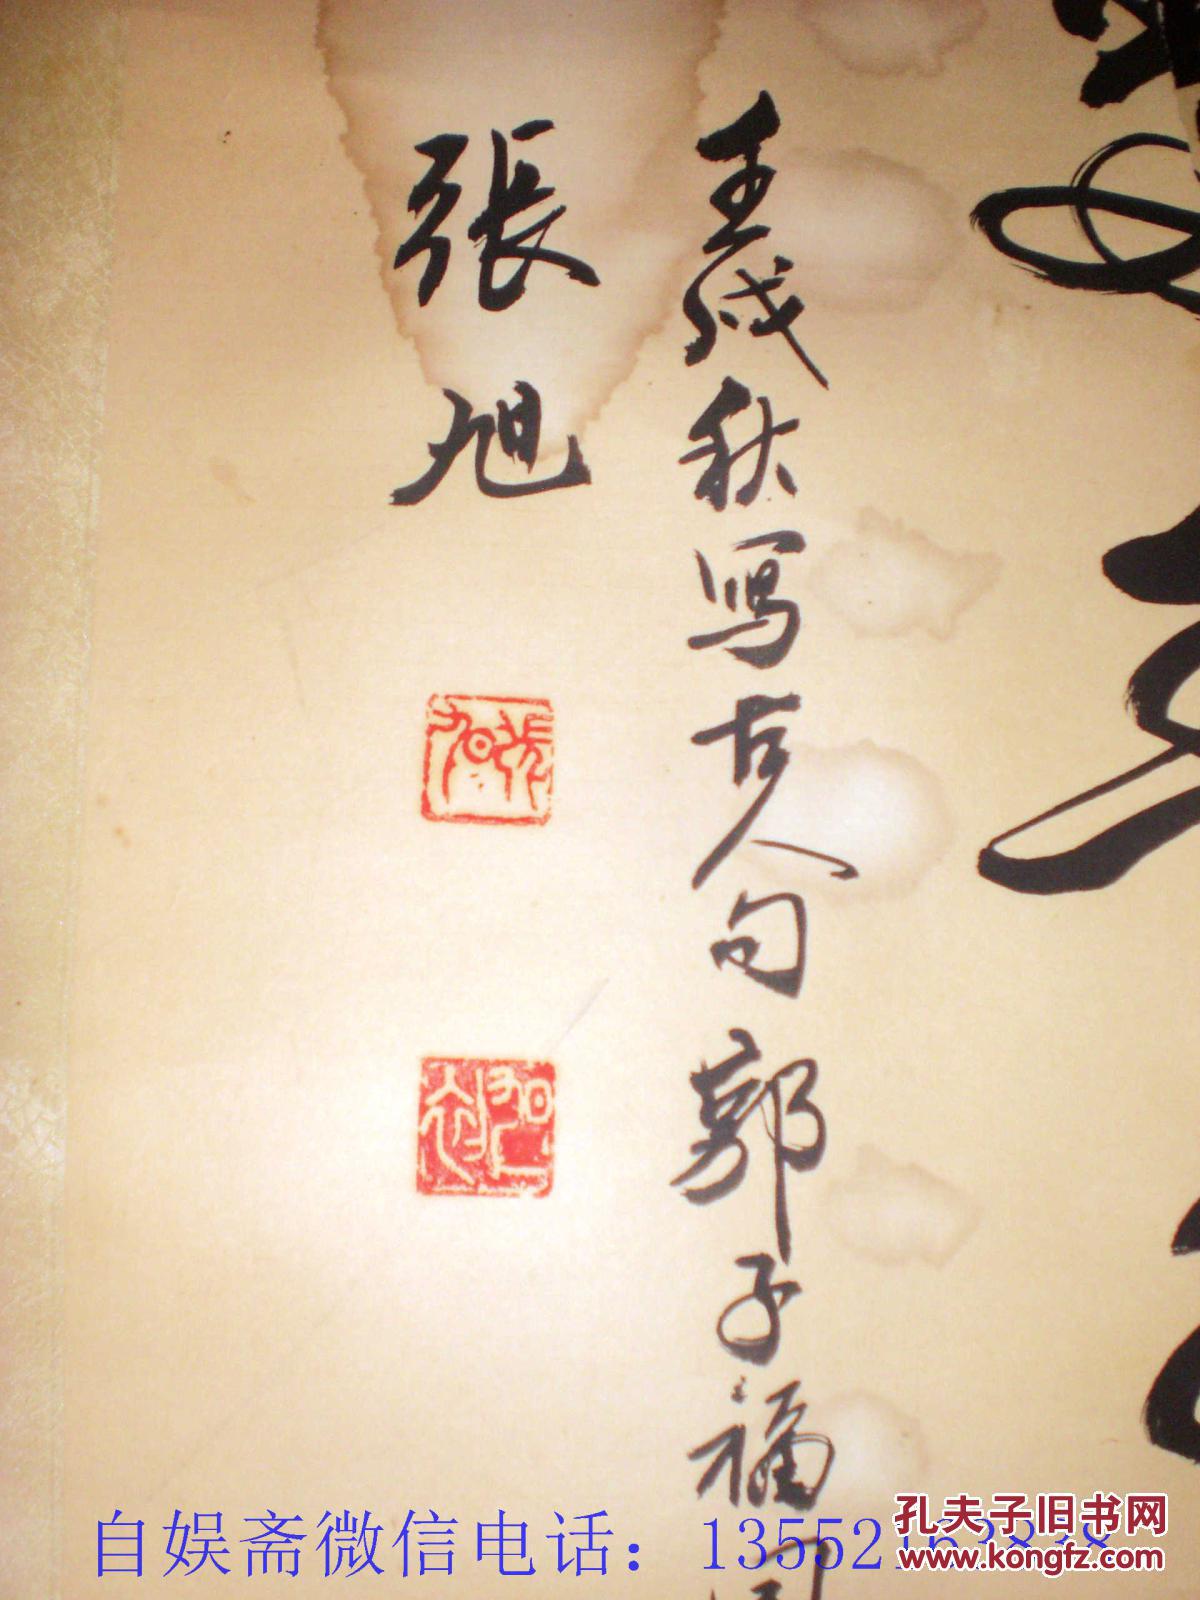 壬戌秋写古人句郭子福同
張旭
張旭
自娱斋微信电话：13552163838
孔夫子旧书网
www.kongfz.com